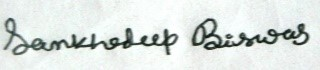 Sankhadeep Biswas